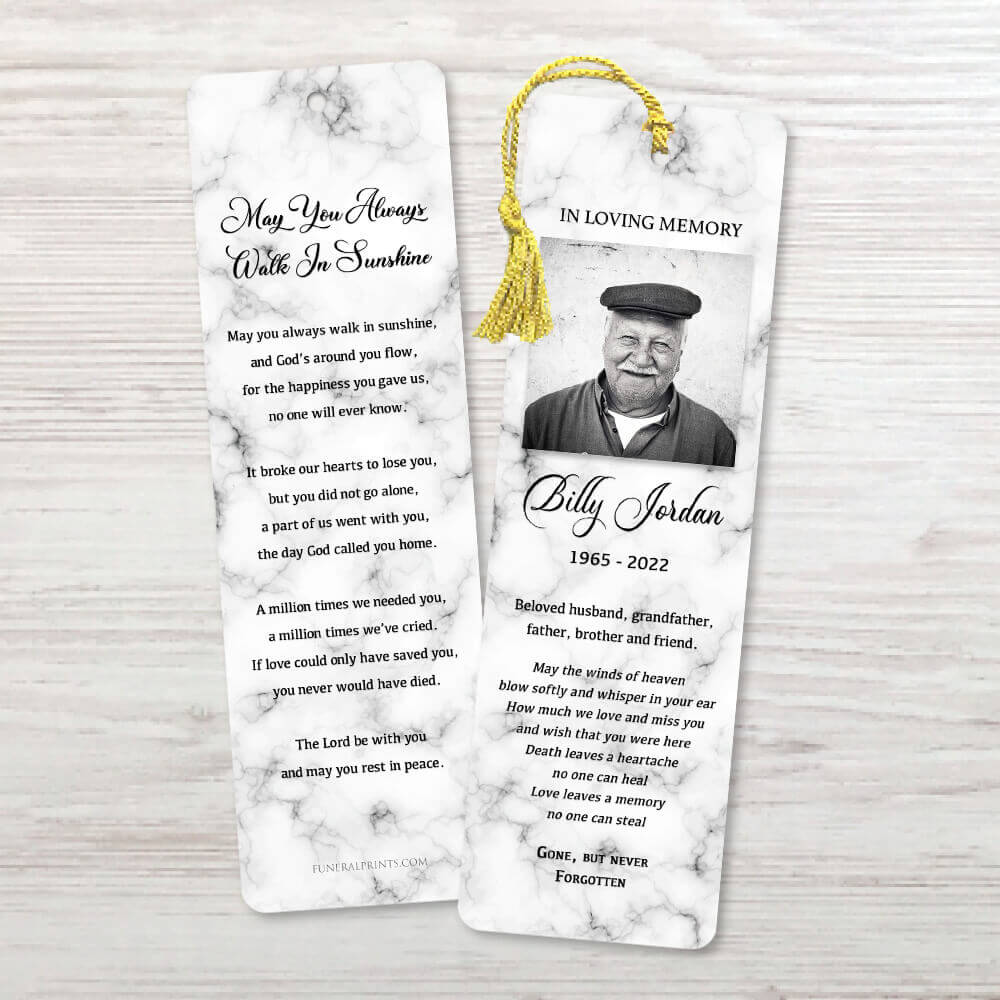 May You Always
Walk In Sunshine
May you always walk in sunshine,
and God's around you flow,
for the happiness you gave us,
no one will ever know.
It broke our hearts to lose you,
but you did not go alone,
a part of us went with you,
the day God called you home.
A million times we needed you,
a million times we've cried.
If love could only have saved you,
you never would have died.
The Lord be with you
and may you rest in peace.
FUNERALPRINTS.COM
IN LOVING MEMORY
Billy Jordan
1965 - 2022
Beloved husband, grandfather,
father, brother and friend.
May the winds of heaven
blow softly and whisper in your ear
How much we love and miss you
and wish that you were here
Death leaves a heartache
no one can heal
Love leaves a memory
no one can steal
Gone, but never
Forgotten